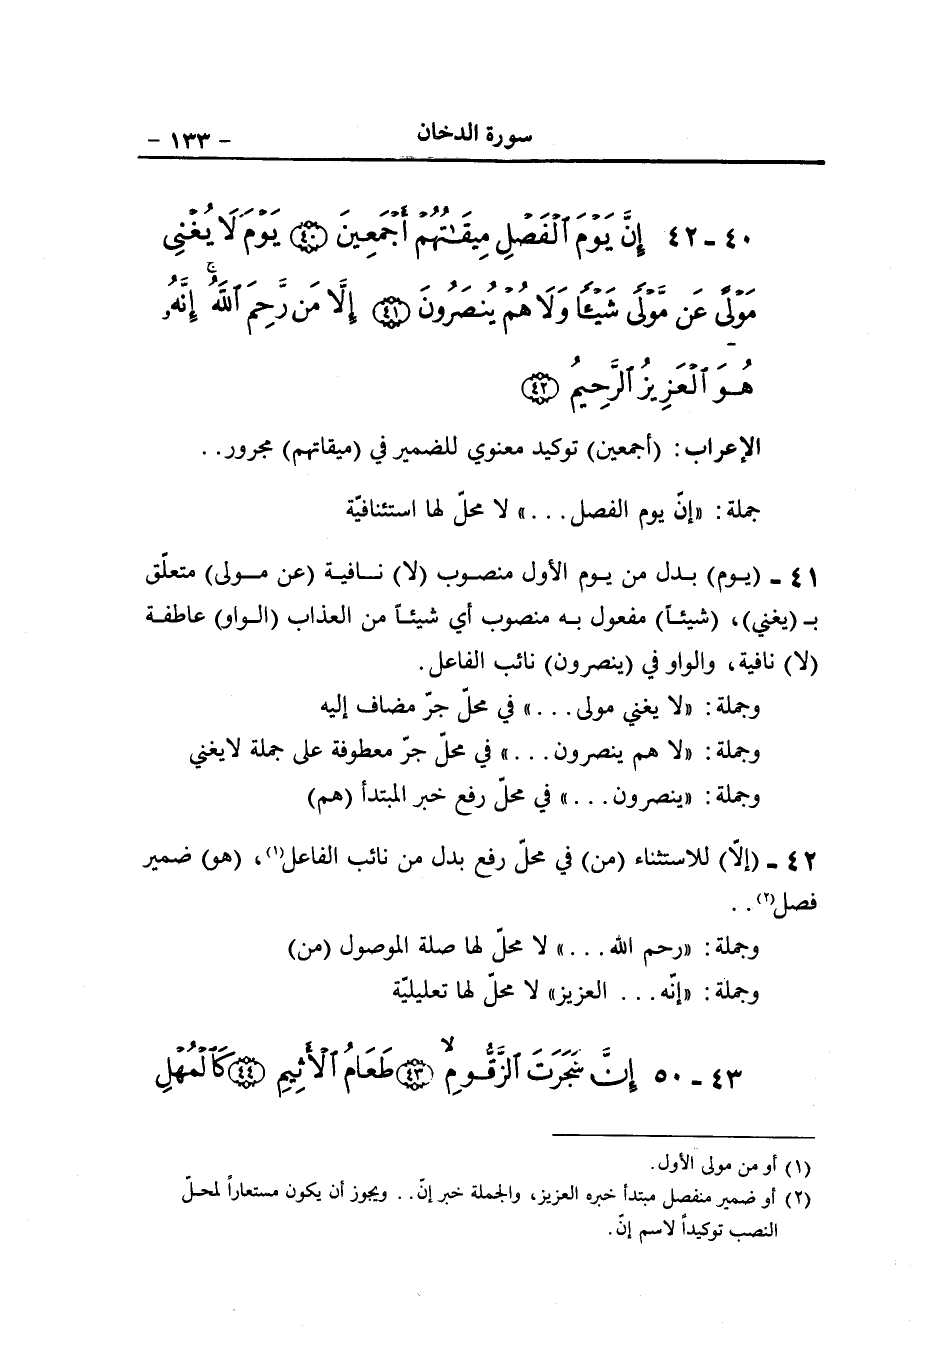 سورة الدخان - ١٣٣ -
٤٠ - ٤٢ إِنَّ يَوْمَ ٱلْفَصْلِ مِيقَٰتُهُمْ أَجْمَعِينَ ﴿٤٠﴾ يَوْمَ لَا يُغْنِي
مَوْلًى عَن مَّوْلًى شَيْـًٔا وَلَا هُمْ يُنصَرُونَ ﴿٤١﴾ إِلَّا مَن رَّحِمَ ٱللَّهُ ۚ إِنَّهُۥ
هُوَ ٱلْعَزِيزُ ٱلرَّحِيمُ ﴿٤٢﴾
الإعراب: (أجمعين) توكيد معنوي للضمير في (ميقاتهم) مجرور..
جملة: «إنّ يوم الفصل...» لا محلّ لها استئنافيّة
٤١ - (يوم) بدل من يوم الأول منصوب (لا) نافية (عن مولى) متعلّق
بـ (يغني)، (شيئاً) مفعول به منصوب أي شيئاً من العذاب (الواو) عاطفة
(لا) نافية، والواو في (ينصرون) نائب الفاعل.
وجملة: «لا يغني مولى...» في محلّ جرّ مضاف إليه
وجملة: «لا هم ينصرون...» في محلّ جرّ معطوفة على جملة لايغني
وجملة: «ينصرون...» في محلّ رفع خبر المبتدأ (هم)
٤٢ - (إلّا) للاستثناء (من) في محلّ رفع بدل من نائب الفاعل(١)، (هو) ضمير
فصل(٢)..
وجملة: «رحم الله...» لا محلّ لها صلة الموصول (من)
وجملة: «إنّه... العزيز» لا محلّ لها تعليليّة
٤٣ - ٥٠ إِنَّ شَجَرَتَ ٱلزَّقُّومِ ﴿٤٣﴾ طَعَامُ ٱلْأَثِيمِ ﴿٤٤﴾ كَٱلْمُهْلِ
(١) أو من مولى الأول.
(٢) أو ضمير منفصل مبتدأ خبره العزيز، والجملة خبر إنّ.. ويجوز أن يكون مستعاراً لمحلّ
النصب توكيداً لاسم إنّ.